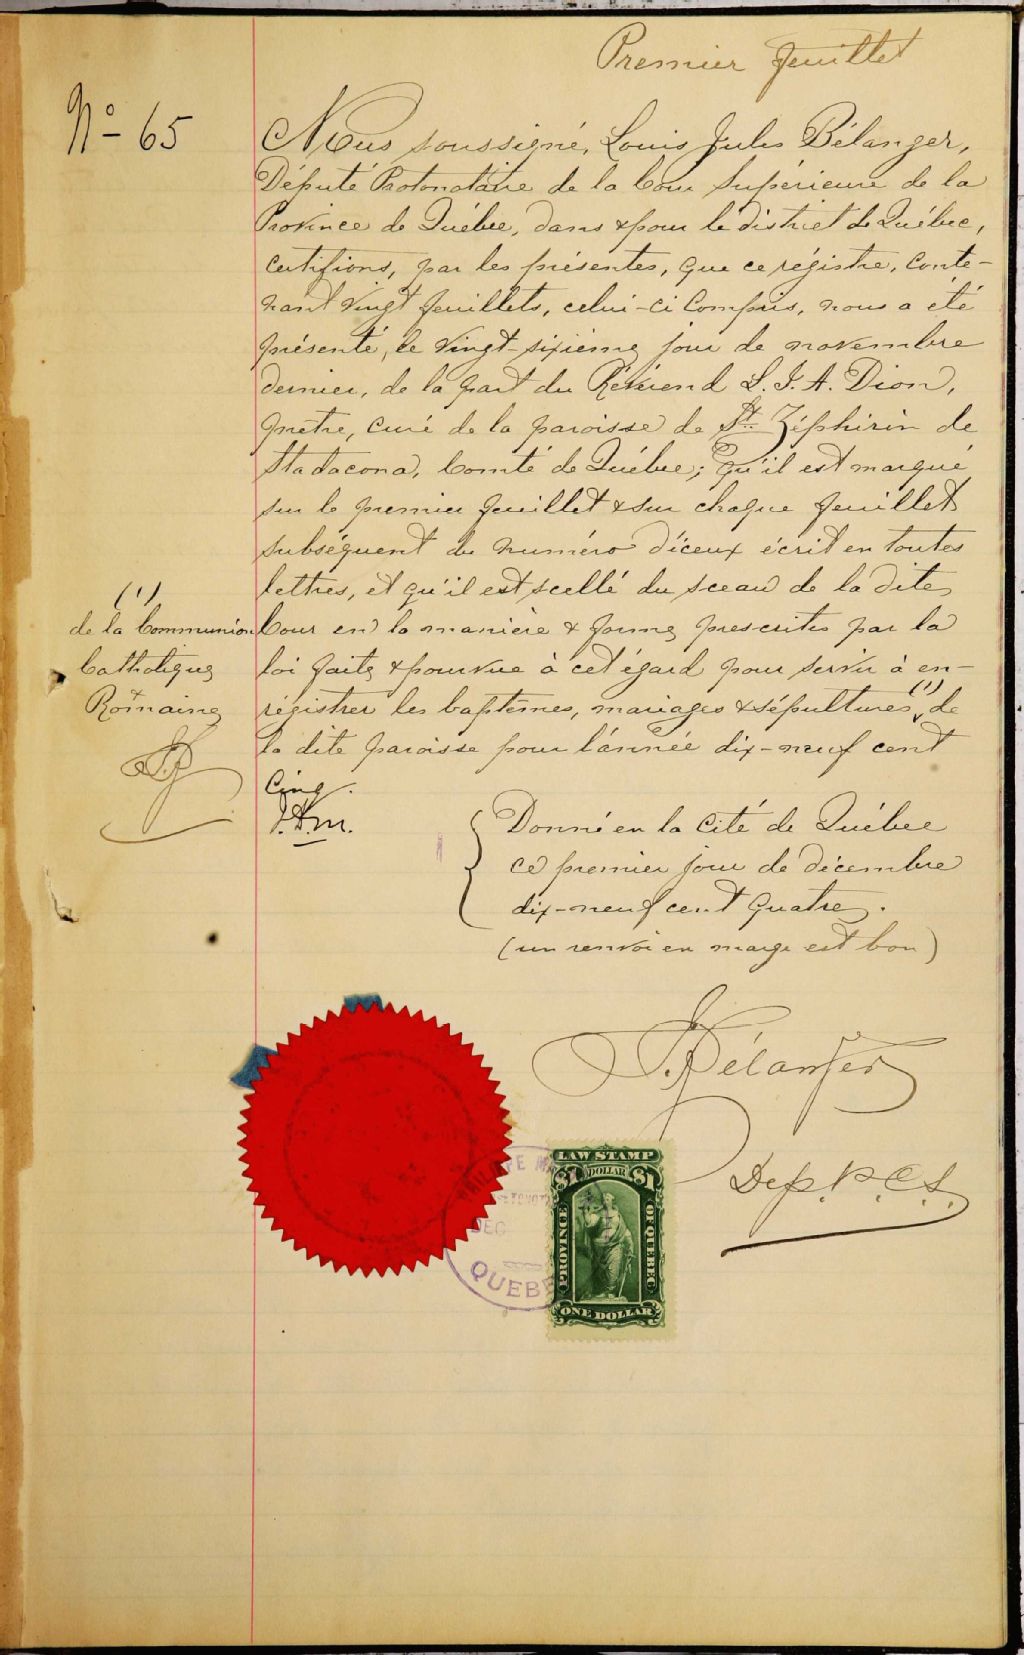 Premier feuillet
No 65
Nous soussigné, Louis Jules Bélanger,
Député Protonotaire de la Cour Supérieure de la
Province de Québec, dans & pour le district de Québec,
certifions, par les présentes, que ce régistre, conte-
nant vingt feuillets, celui-ci compris, nous a été
présenté, le vingt-sixième jour de novembre
dernier, de la part du Révérend L. J. A. Dion,
prêtre, curé de la paroisse de St. Zéphirin de
Stadacona, Comté de Québec; qu'il est marqué
sur le premier feuillet & sur chaque feuillet
subséquent du numéro d'iceux écrit en toutes
lettres, et qu'il est scellé du sceau de la dite
Cour en la manière & forme prescrites par la
loi faite & pourvue à cet égard pour servir à en-
régistrer les baptêmes, mariages & sépultures (1) de
la dite paroisse pour l'année dix-neuf cent
Cinq.
(1)
de la Communion
Catholique
Romaine
Donné en la Cité de Québec
ce premier jour de décembre
dix-neuf cent quatre.
(un renvoi en marge est bon)
Bélanger
Dep. P. C. S.
LAW STAMP
$1 DOLLAR $1
PROVINCE OF QUEBEC
ONE DOLLAR
DEC
QUEBE